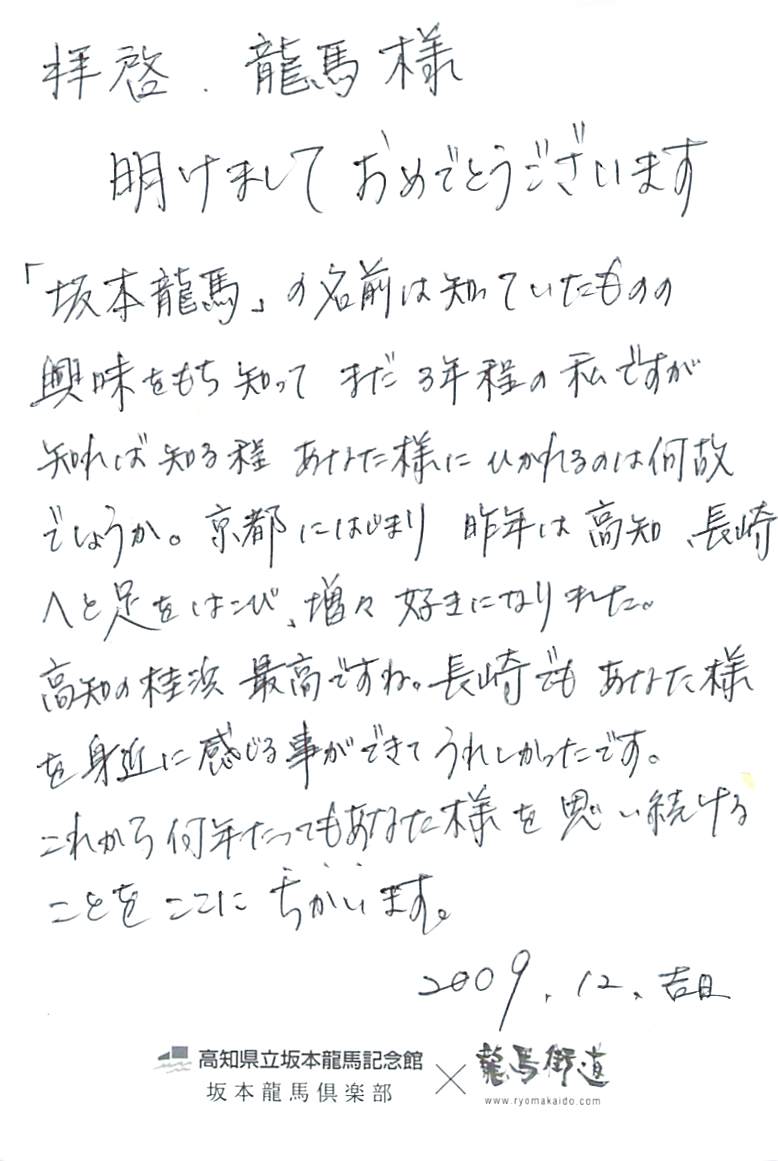 拝啓. 龍馬様
明けまして おめでとうございます
「坂本龍馬」の名前は知っていたものの
興味をもち知って まだ3年程の私ですが
知れば知る程 あなた様にひかれるのは何故
でしょうか。京都にはじまり 昨年は高知、長崎
へと足をはこび、増々好きになりました。
高知の桂浜 最高ですね。長崎でも あなた様
を身近に感じる事ができてうれしかったです。
これから何年たってもあなた様を思い続ける
ことをここに ちかいます。
2009.12.吉日
高知県立坂本龍馬記念館
坂本龍馬倶楽部
×
龍馬街道
www.ryomakaido.com